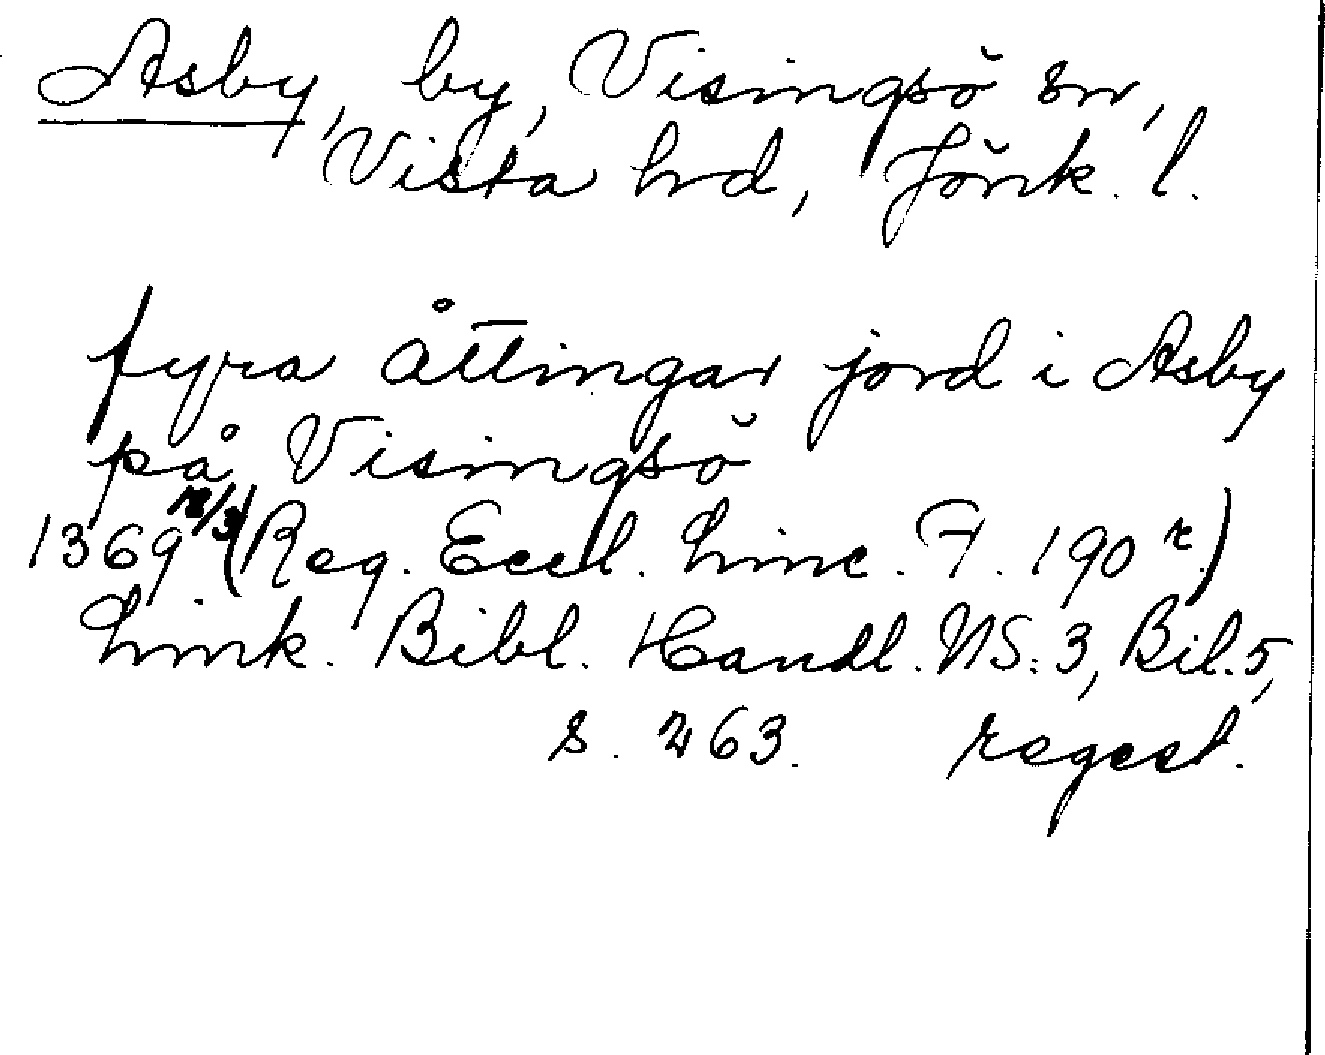 Asby, by, Visingsö sn,
Vista hd, Jönk. l.
fyra åttingar jord i Asby
på Visingsö
1369 12/3 (Reg. Eccl. Linc. F. 190 r.)
Link. Bibl. Handl. NS. 3, Bil. 5,
s. 263. regest.